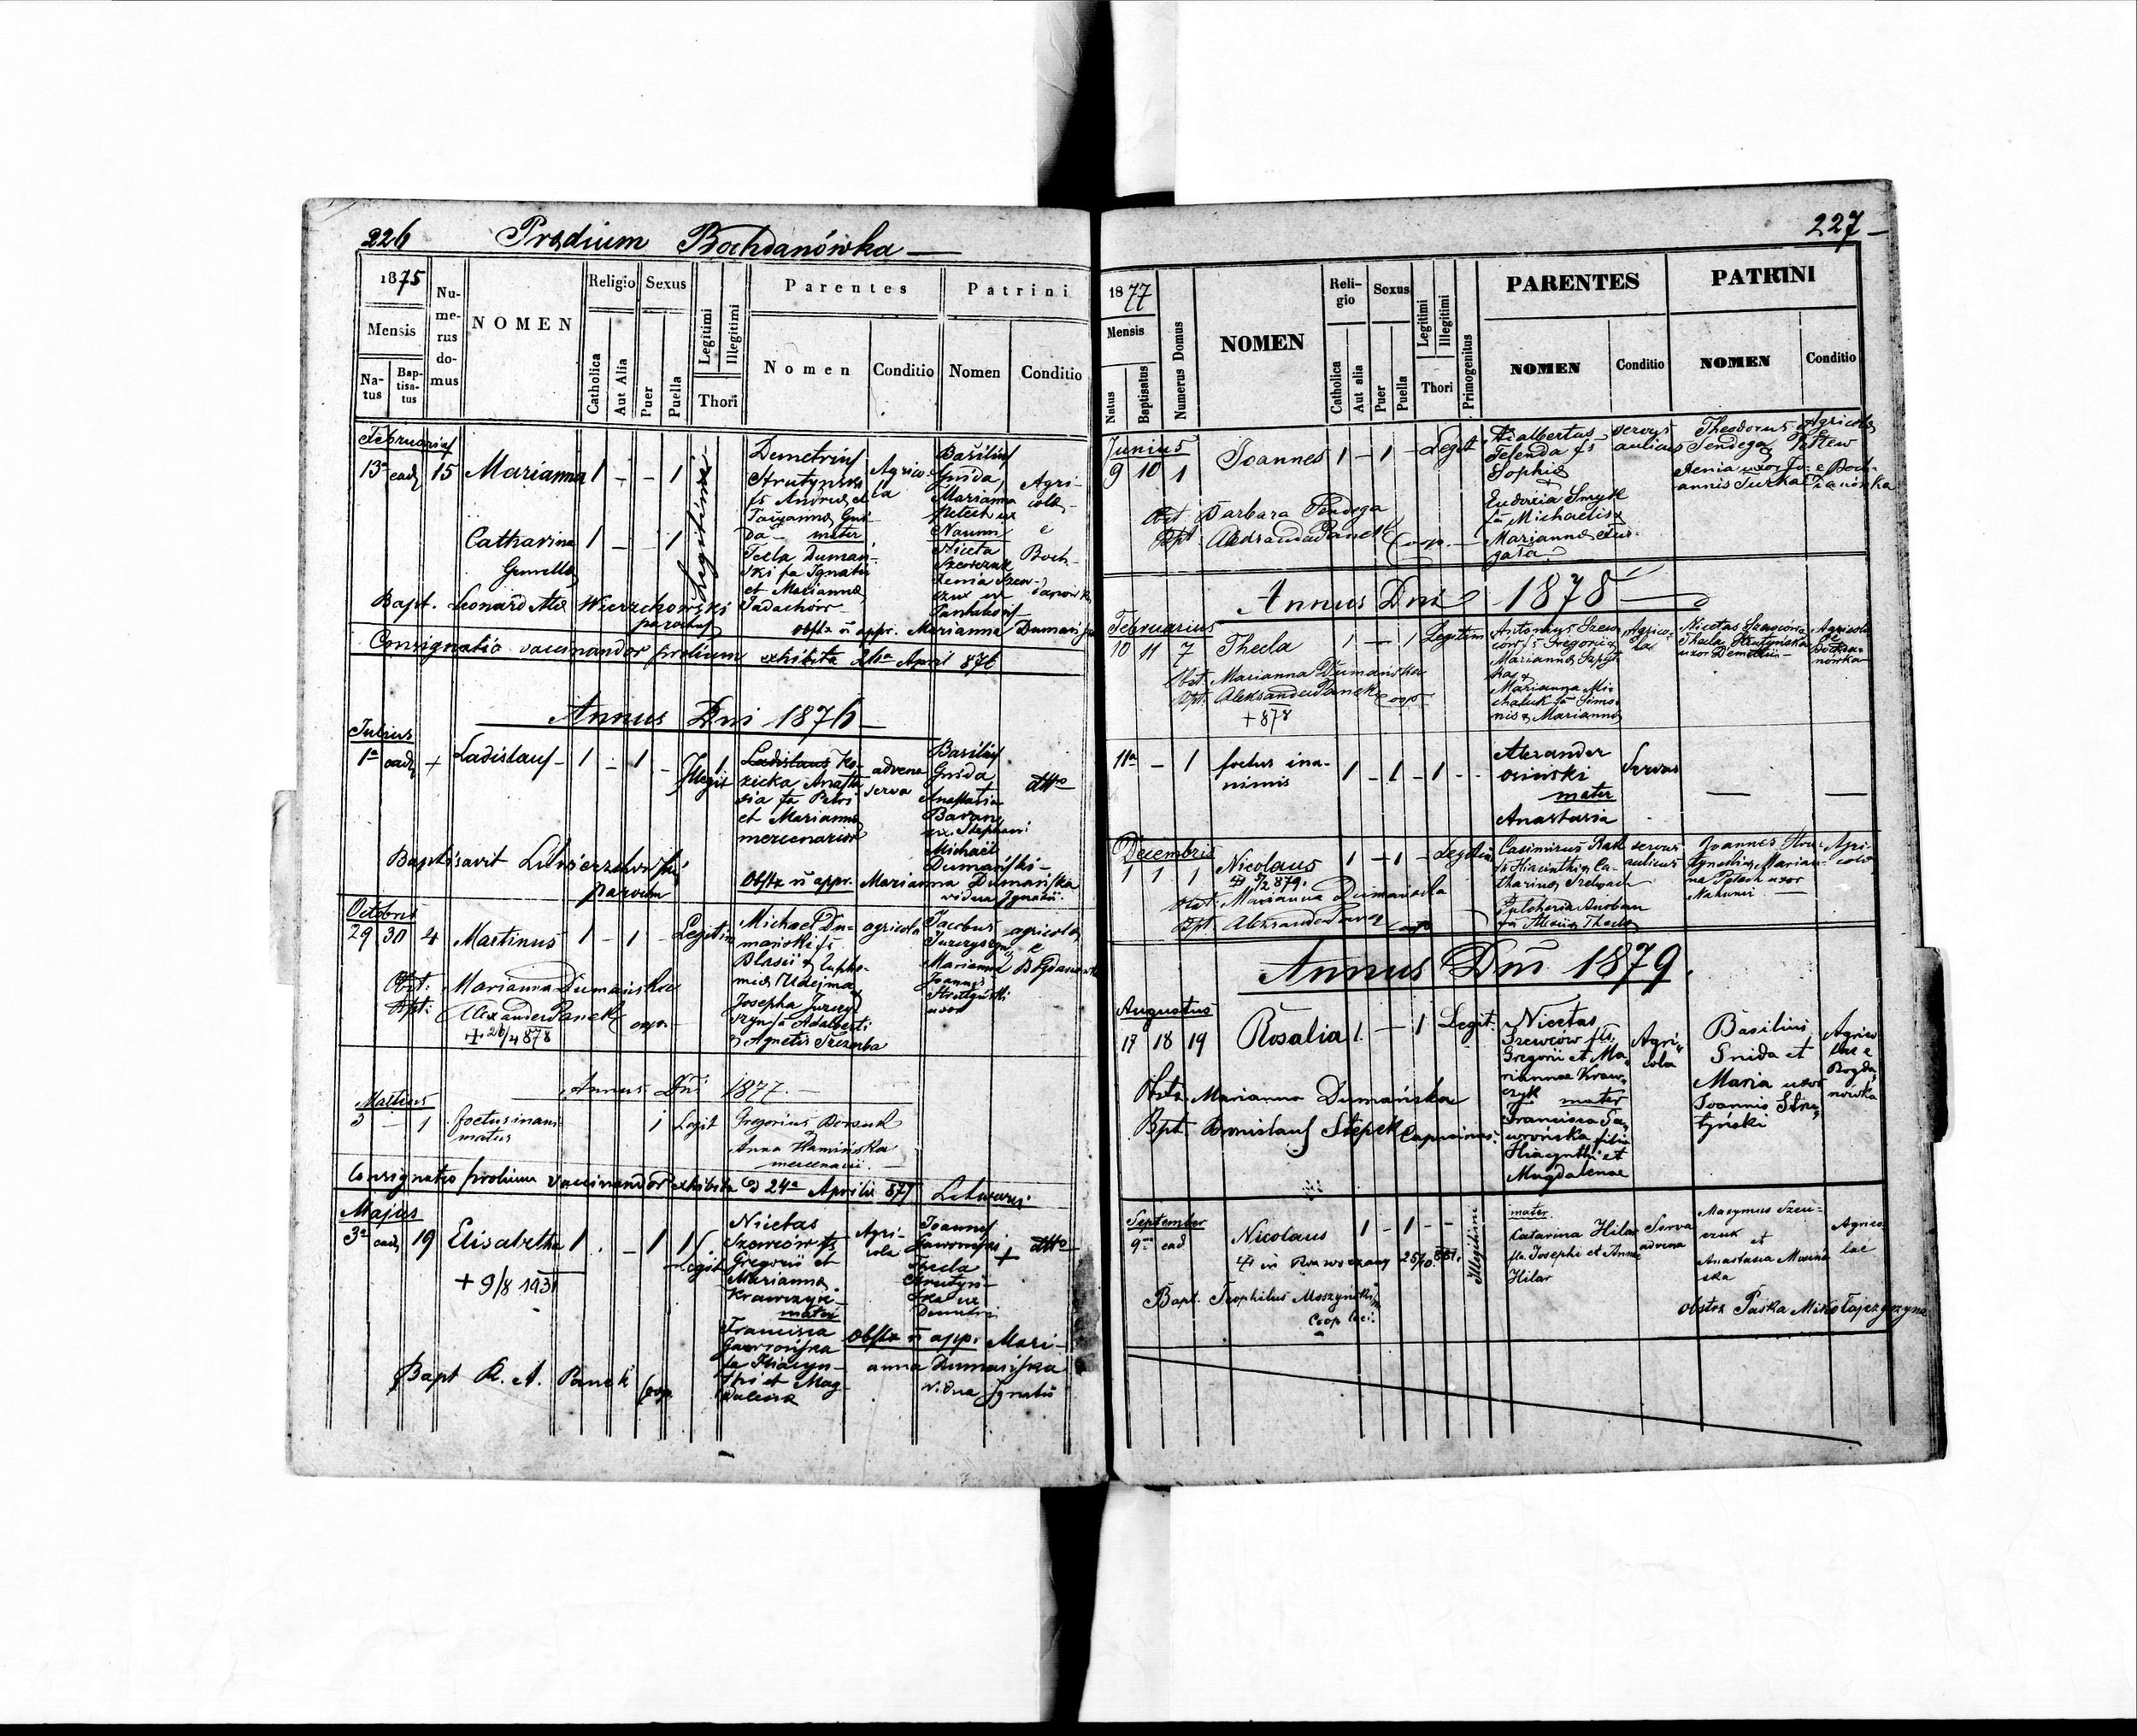 226 Prædium Bochdanówka —
1875
Mensis
Na-
tus
Bap-
tisa-
tus
Nu-
me-
rus
do-
mus
NOMEN
Religio
Catholica
Aut Alia
Sexus
Puer
Puella
Legitimi
Illegitimi
Thori
Parentes
Nomen
Conditio
Patrini
Nomen
Conditio
Februarius
13a ead 15 Marianna 1 - - 1
Legitimi
Demetrius
Strutyński
fs Andreæ et
Gni-
da - mater
Tecla Dumań-
ski fa Ignatii
et Mariannæ
Agrico-
la
Basilius
Gnida,
Marianna
Petech ux
Naumi
Niceta
Szewczuk
Xenia Szew-
czuk ux
Agri-
colæ
e
Boch-
danówka
Catharina 1 - - 1
Gemellæ
Bapt. Leonard Wierzchowski
parochus
Obstx ñ appr. Marianna Dumańska
Consignatio vaccinandor prolium exhibita 26a April 876
Annus Dni 1876
Julius
1a eadem + Ladislaus 1 - 1 -
Illegit 1
Ladislaus Ko-
zicka Anasta-
sia fa Petri
et Mariannæ
mercenarior
advena
serva
Basilius
Gnida
Anastasia
Baran
ux. Stephani
Michaël
Dumański
dtto
Baptisavit L. Wierzchowski
parochus
Obstx ñ appr. Marianna Dumańska
vidua Ignatii
Octobris
29 30 4 Martinus 1 - 1 - Legitim
Michael Du-
mański fs
Blasii &
Josepha
fa Adalberti
& Agnetis Szczerba
agricola
Jacobus
Marianna
Joannis
Strutyński
uxor
agricolæ
e
Bogdanówka
Obst: Marianna Dumańska
Bpt: Alexander Panek coop.
+ 26/4 878
Annus Dni 1877. —
Martius
3 — 1 foetus inani
matus
1 Legit
Gregorius Borsuk
Anna Kamińska
mercenarii
Consignatio prolium vaccinandor exhibita d 24a Aprilis 877
Majus
3a ead 19 Elisabetha 1 . - 1 1
Legit
+ 9/8 1931
Nicetas
Szewców fs
Gregorii et
Mariannæ
Krawczyk
mater
Francisca
Gawrońska
fa Hiacyn-
thi et Mag-
dalenæ
Agri-
cola
Joannes
Gawroński +
Thecla
Strutyń-
ska ux
Demetri
dtto
Obstx ñ app. Mari-
anna Dumańska
vidua Ignatii
Bapt R. A. Panek Coop
227
1877
Mensis
Natus
Baptisatus
Numerus Domus
NOMEN
Reli-
gio
Catholica
Aut alia
Sexus
Puer
Puella
Legitimi
Illegitimi
Thori
Primogenitus
PARENTES
NOMEN
Conditio
PATRINI
NOMEN
Conditio
Junius
9 10 1 Joannes 1 - 1 - Legit
Adalbertus
Telenda fs
Sophiæ
&
Eudoxia Smyk
fa Michaelis &
Mariannæ
servus
aulicus
Theodorus
Fendega &
Xenia uxor Jo-
annis Turka
Agricolæ
e Boch-
danówka
Obst Barbara Fendega
Bpt Alexander Panek Coop.
Annus Dni 1878
Februarius
10 11 7 Thecla 1 - 1 Legitim
Antonius Szew-
ców fs Gregorii &
Mariannæ
&
Marianna Mi-
chaluk fa Simo-
nis & Mariannæ
Agrico-
la
Nicetas Szewców &
Thecla Strutyńska
uxor Demetrii
Agricolæ
e
Bochda-
nówka
Obst. Marianna Dumańska
Bpt. Aleksander Panek Coop
+ 878
11a - 1 foetus ina-
nimis
1 - 1 - 1 - -
Alexander
Osiński
mater
Anastasia
Servus
Decembris
1 1 1 Nicolaus 1 - 1 - Legitim
5/2 879.
Casimirus Rak
fs Hiacinthi & Ca-
tharinæ
&
Pulcheria
fa Alexii & Theclæ
servus
aulicus
Joannes Stru-
tyński & Marian-
na Petech uxor
Nahumi
Agri-
colæ
Obst: Marianna Dumańska
Bpt Aleksander Panek Coop
Annus Dni 1879.
Augustus
17 18 19 Rosalia 1. - 1 Legit.
Nicetas
Szewców fils.
Gregorii et Ma-
riannae Kraw-
czyk mater
Francisca Ga-
wrońska filia
Hiacynthi et
Magdalenae
Agri-
cola
Basilius
Gnida et
Maria uxor
Joannis Stru-
tyński
Agrico-
lae e
Bogda-
nówka
Obstx Marianna Dumańska
Bpt. Bronislaus Stepek Capucinus.
September
9na ead Nicolaus 1 - 1 - -
Illegitimi
25/10 881.
mater.
Catarina Hilar
fla Josephi et Annæ
Hilar
Serva
advena
Maxymus Szew-
czuk et
Anastasia
Agrico-
lae
Bapt. Teophilus Moszyński
Coop loci.
Obstrx Paśka Mikołajczyszyna